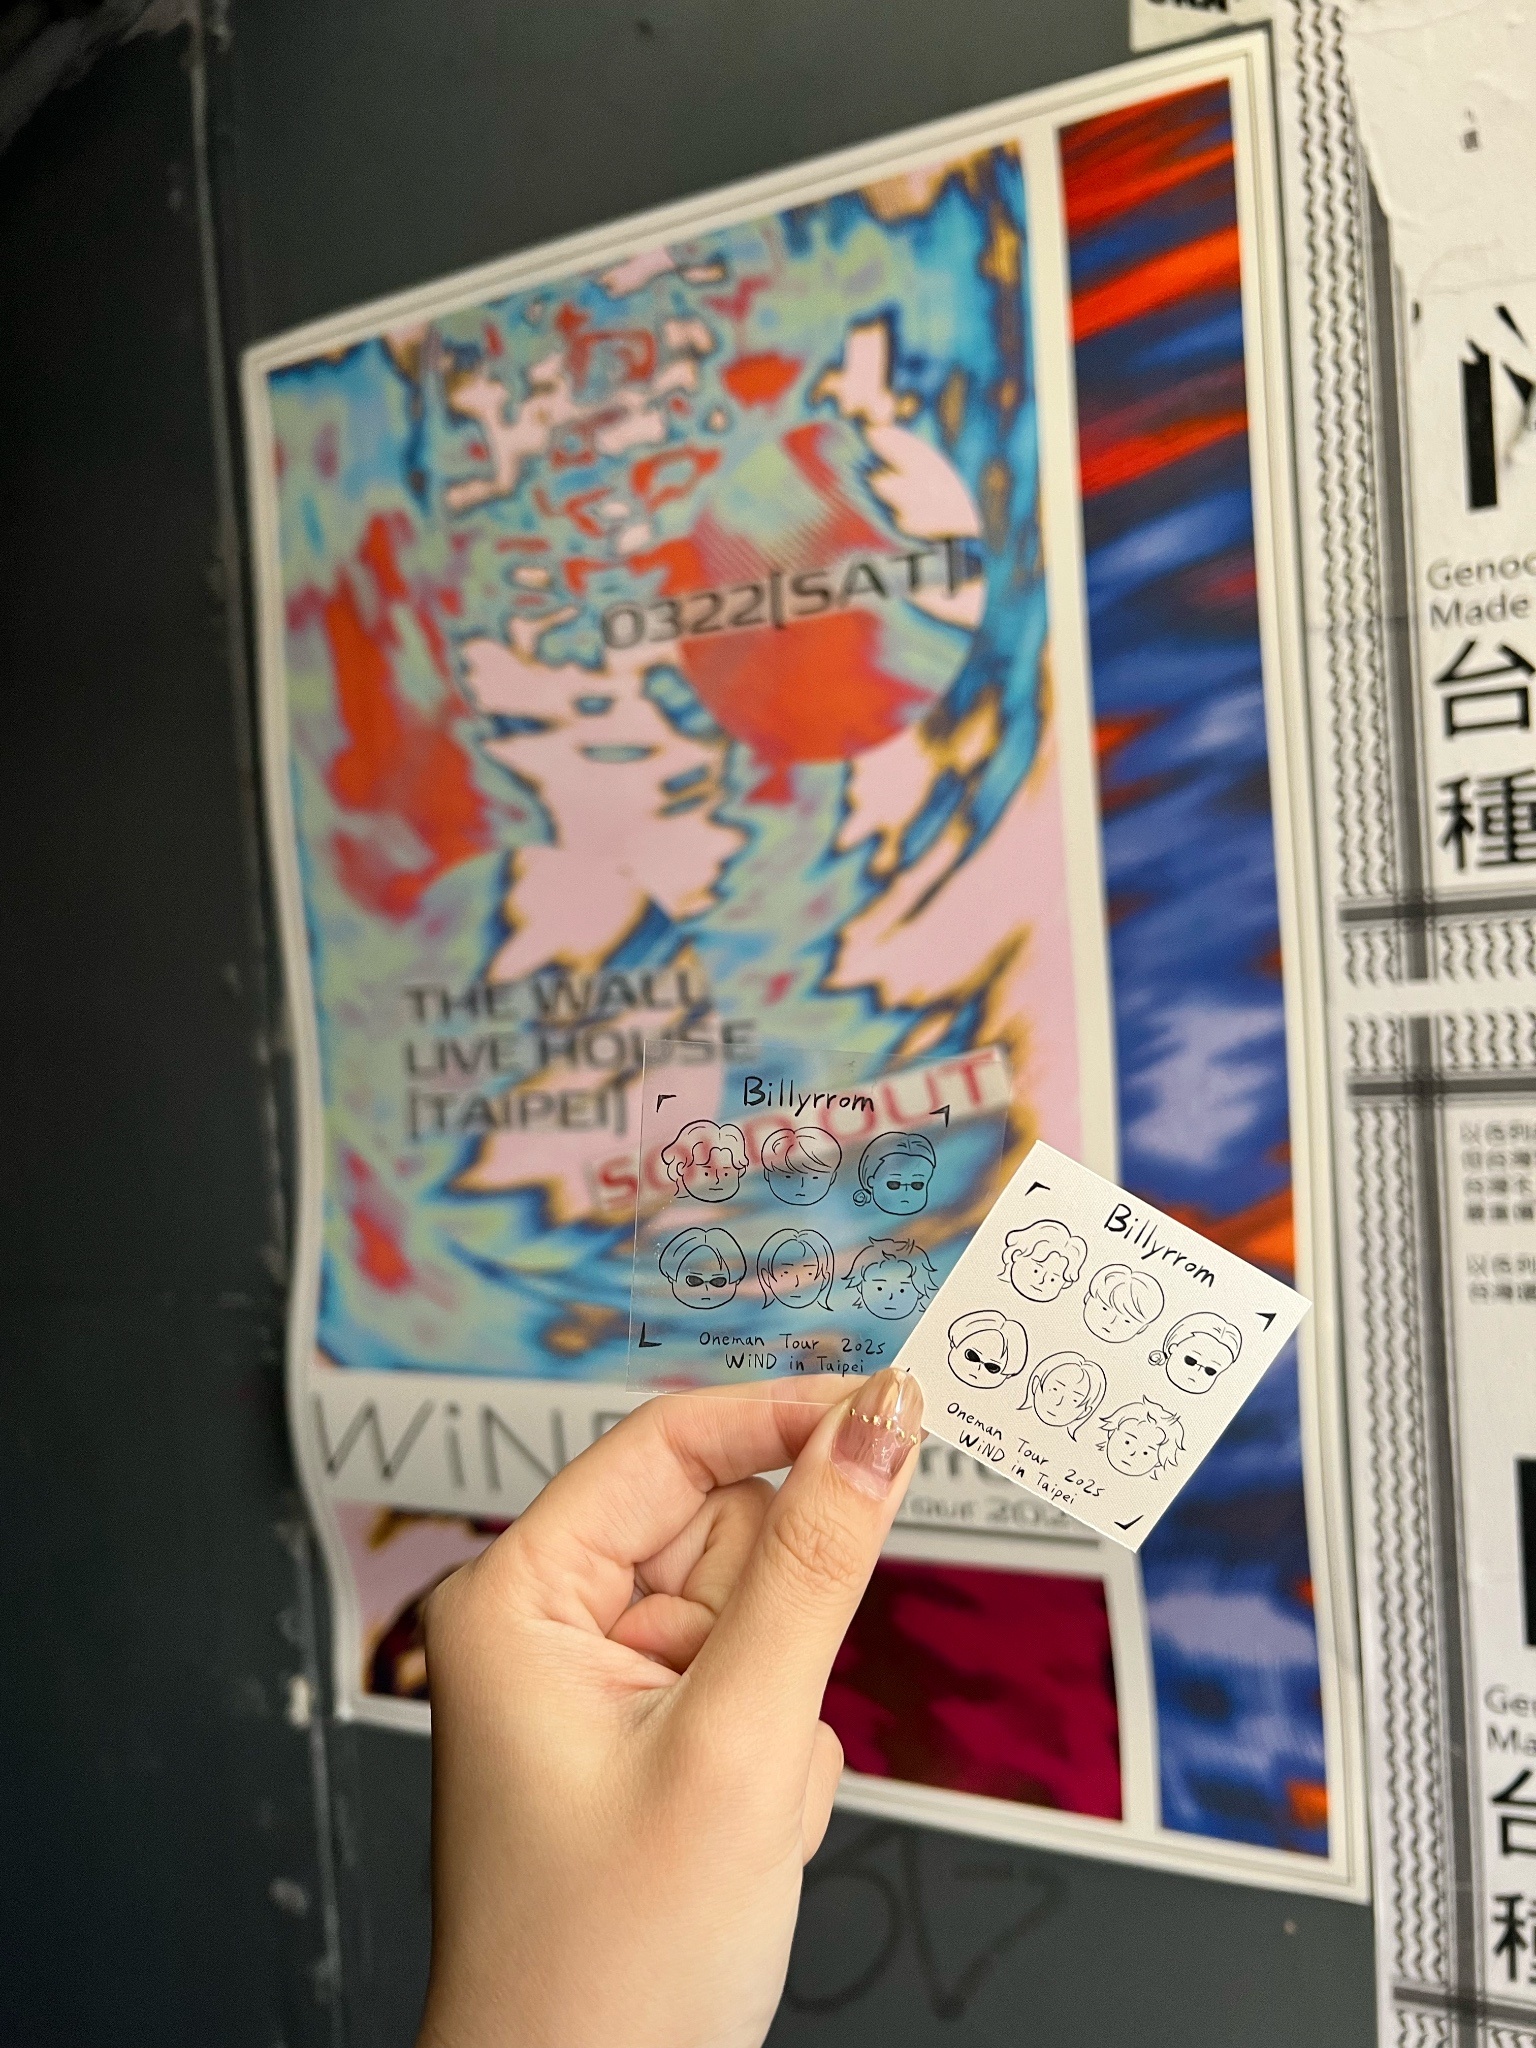 0322[SAT]
THE WALL
LIVE HOUSE
[TAIPEI]
SOLD OUT
Billyrrom
Oneman Tour 2025
WiND in Taipei
Billyrrom
Oneman Tour 2025
WiND in Taipei
WiN
Tour 202
Genoc
Made
台
種
Ge
Ma
台
種